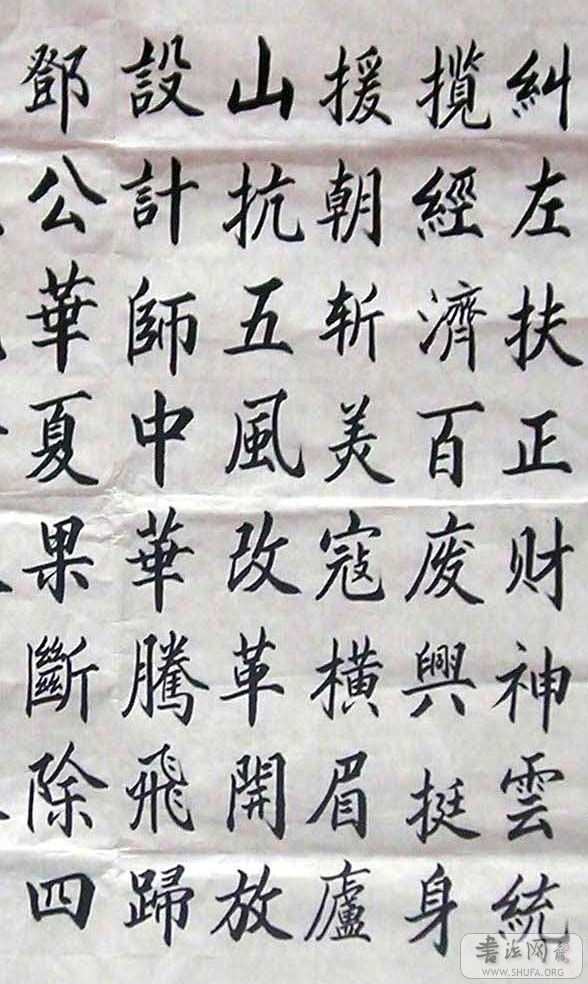 糾左扶正财神雲統
攬經濟百废興挺身
援朝斩美寇横眉廬
山抗五風改革開放
設計師中華騰飛歸
鄧公華夏果斷除四
書法网
WWW.SHUFA.ORG